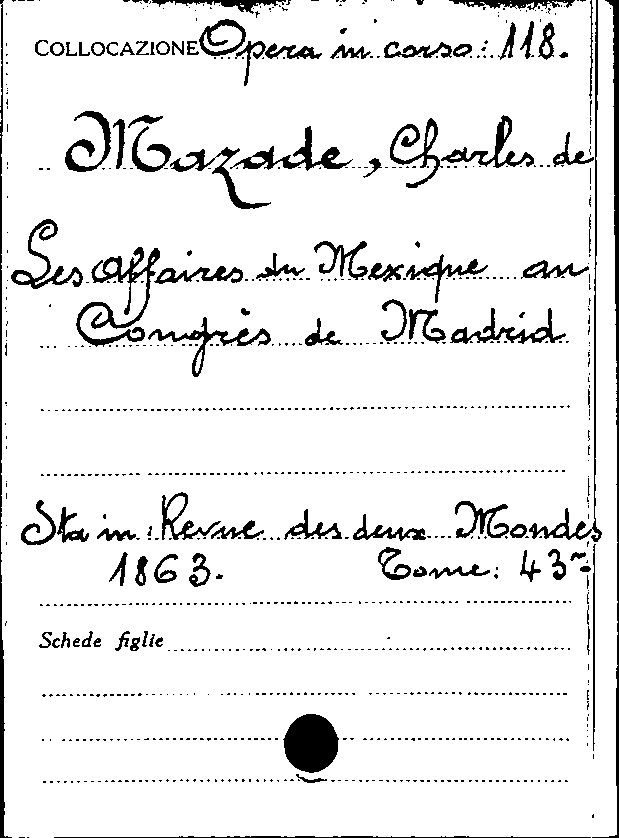 COLLOCAZIONE Opera in corso: 118.
Mazade, Charles de
Les Affaires du Mexique au
Congrès de Madrid
Sta in: Revue des deux Mondes
1863. Tome: 43me
Schede figlie